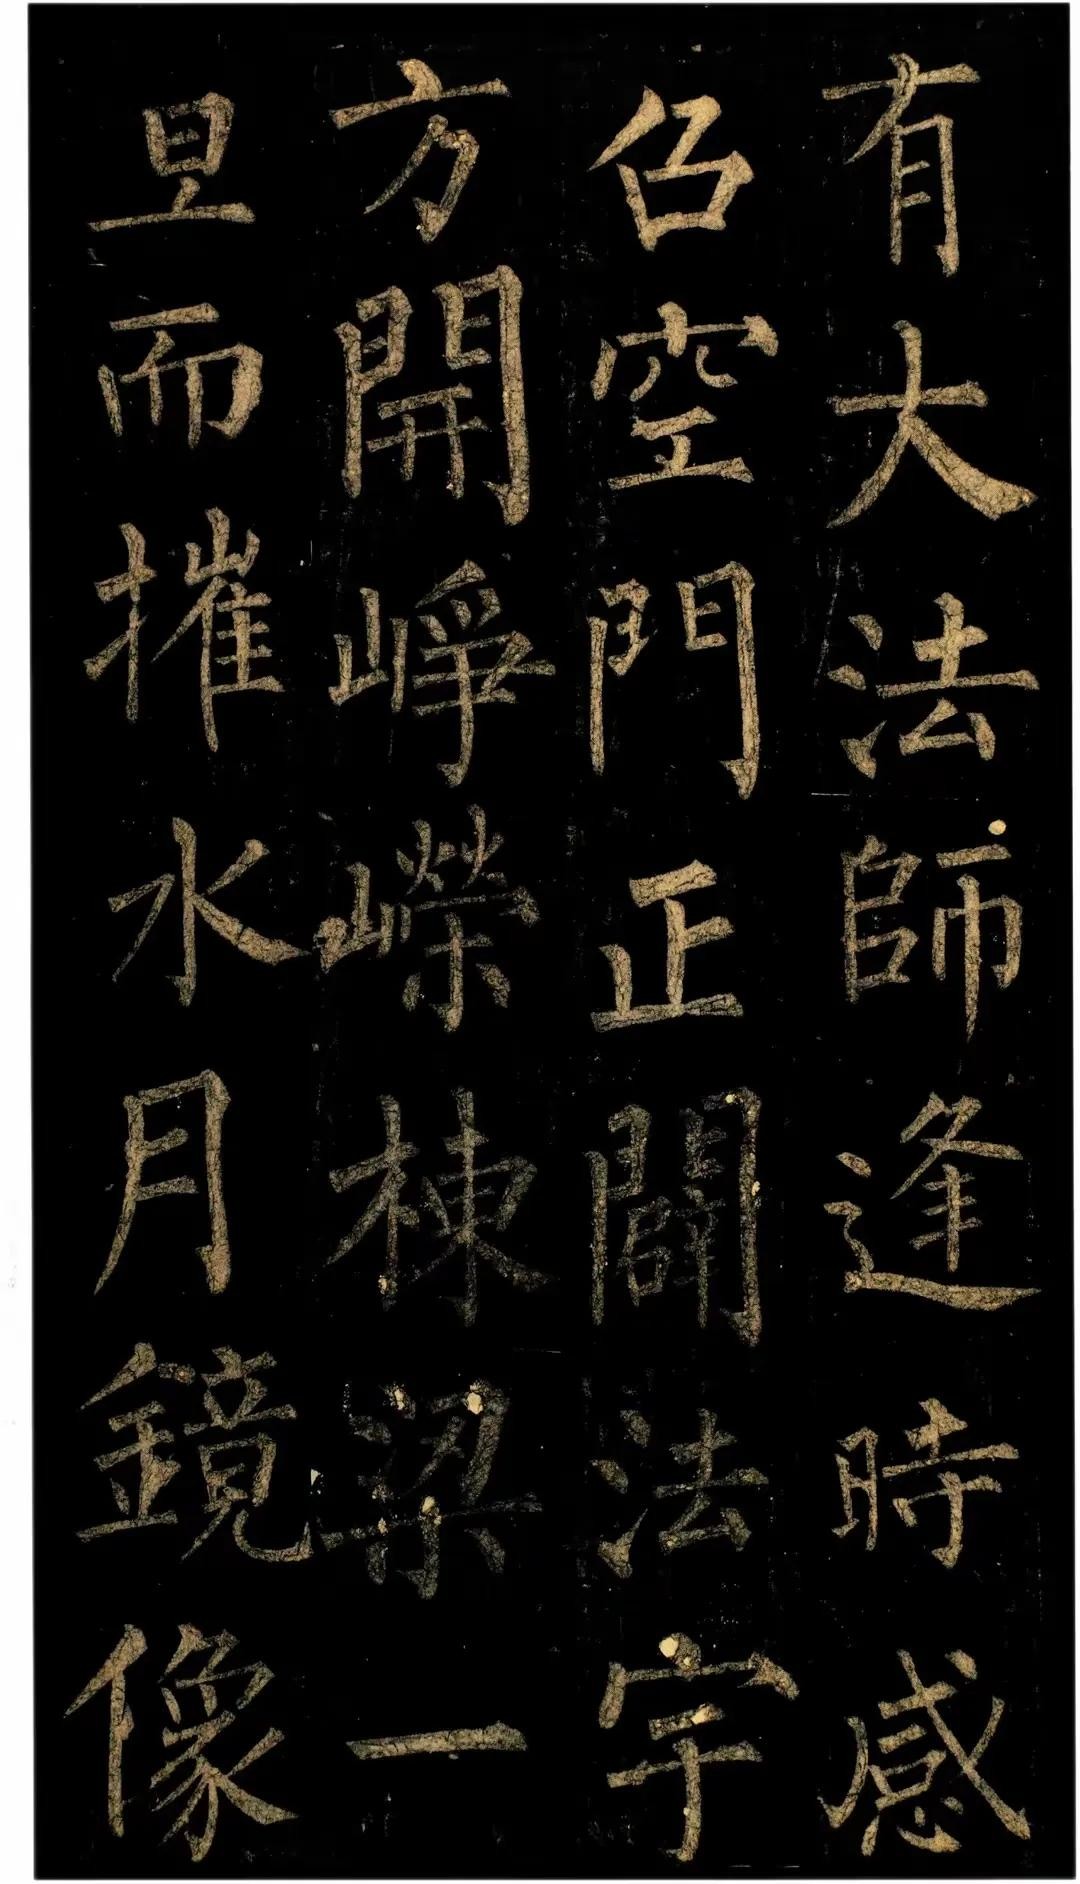 有大法師逢時感
召空門正闢法宇
方開崢嶸棟梁一
旦而摧水月鏡像